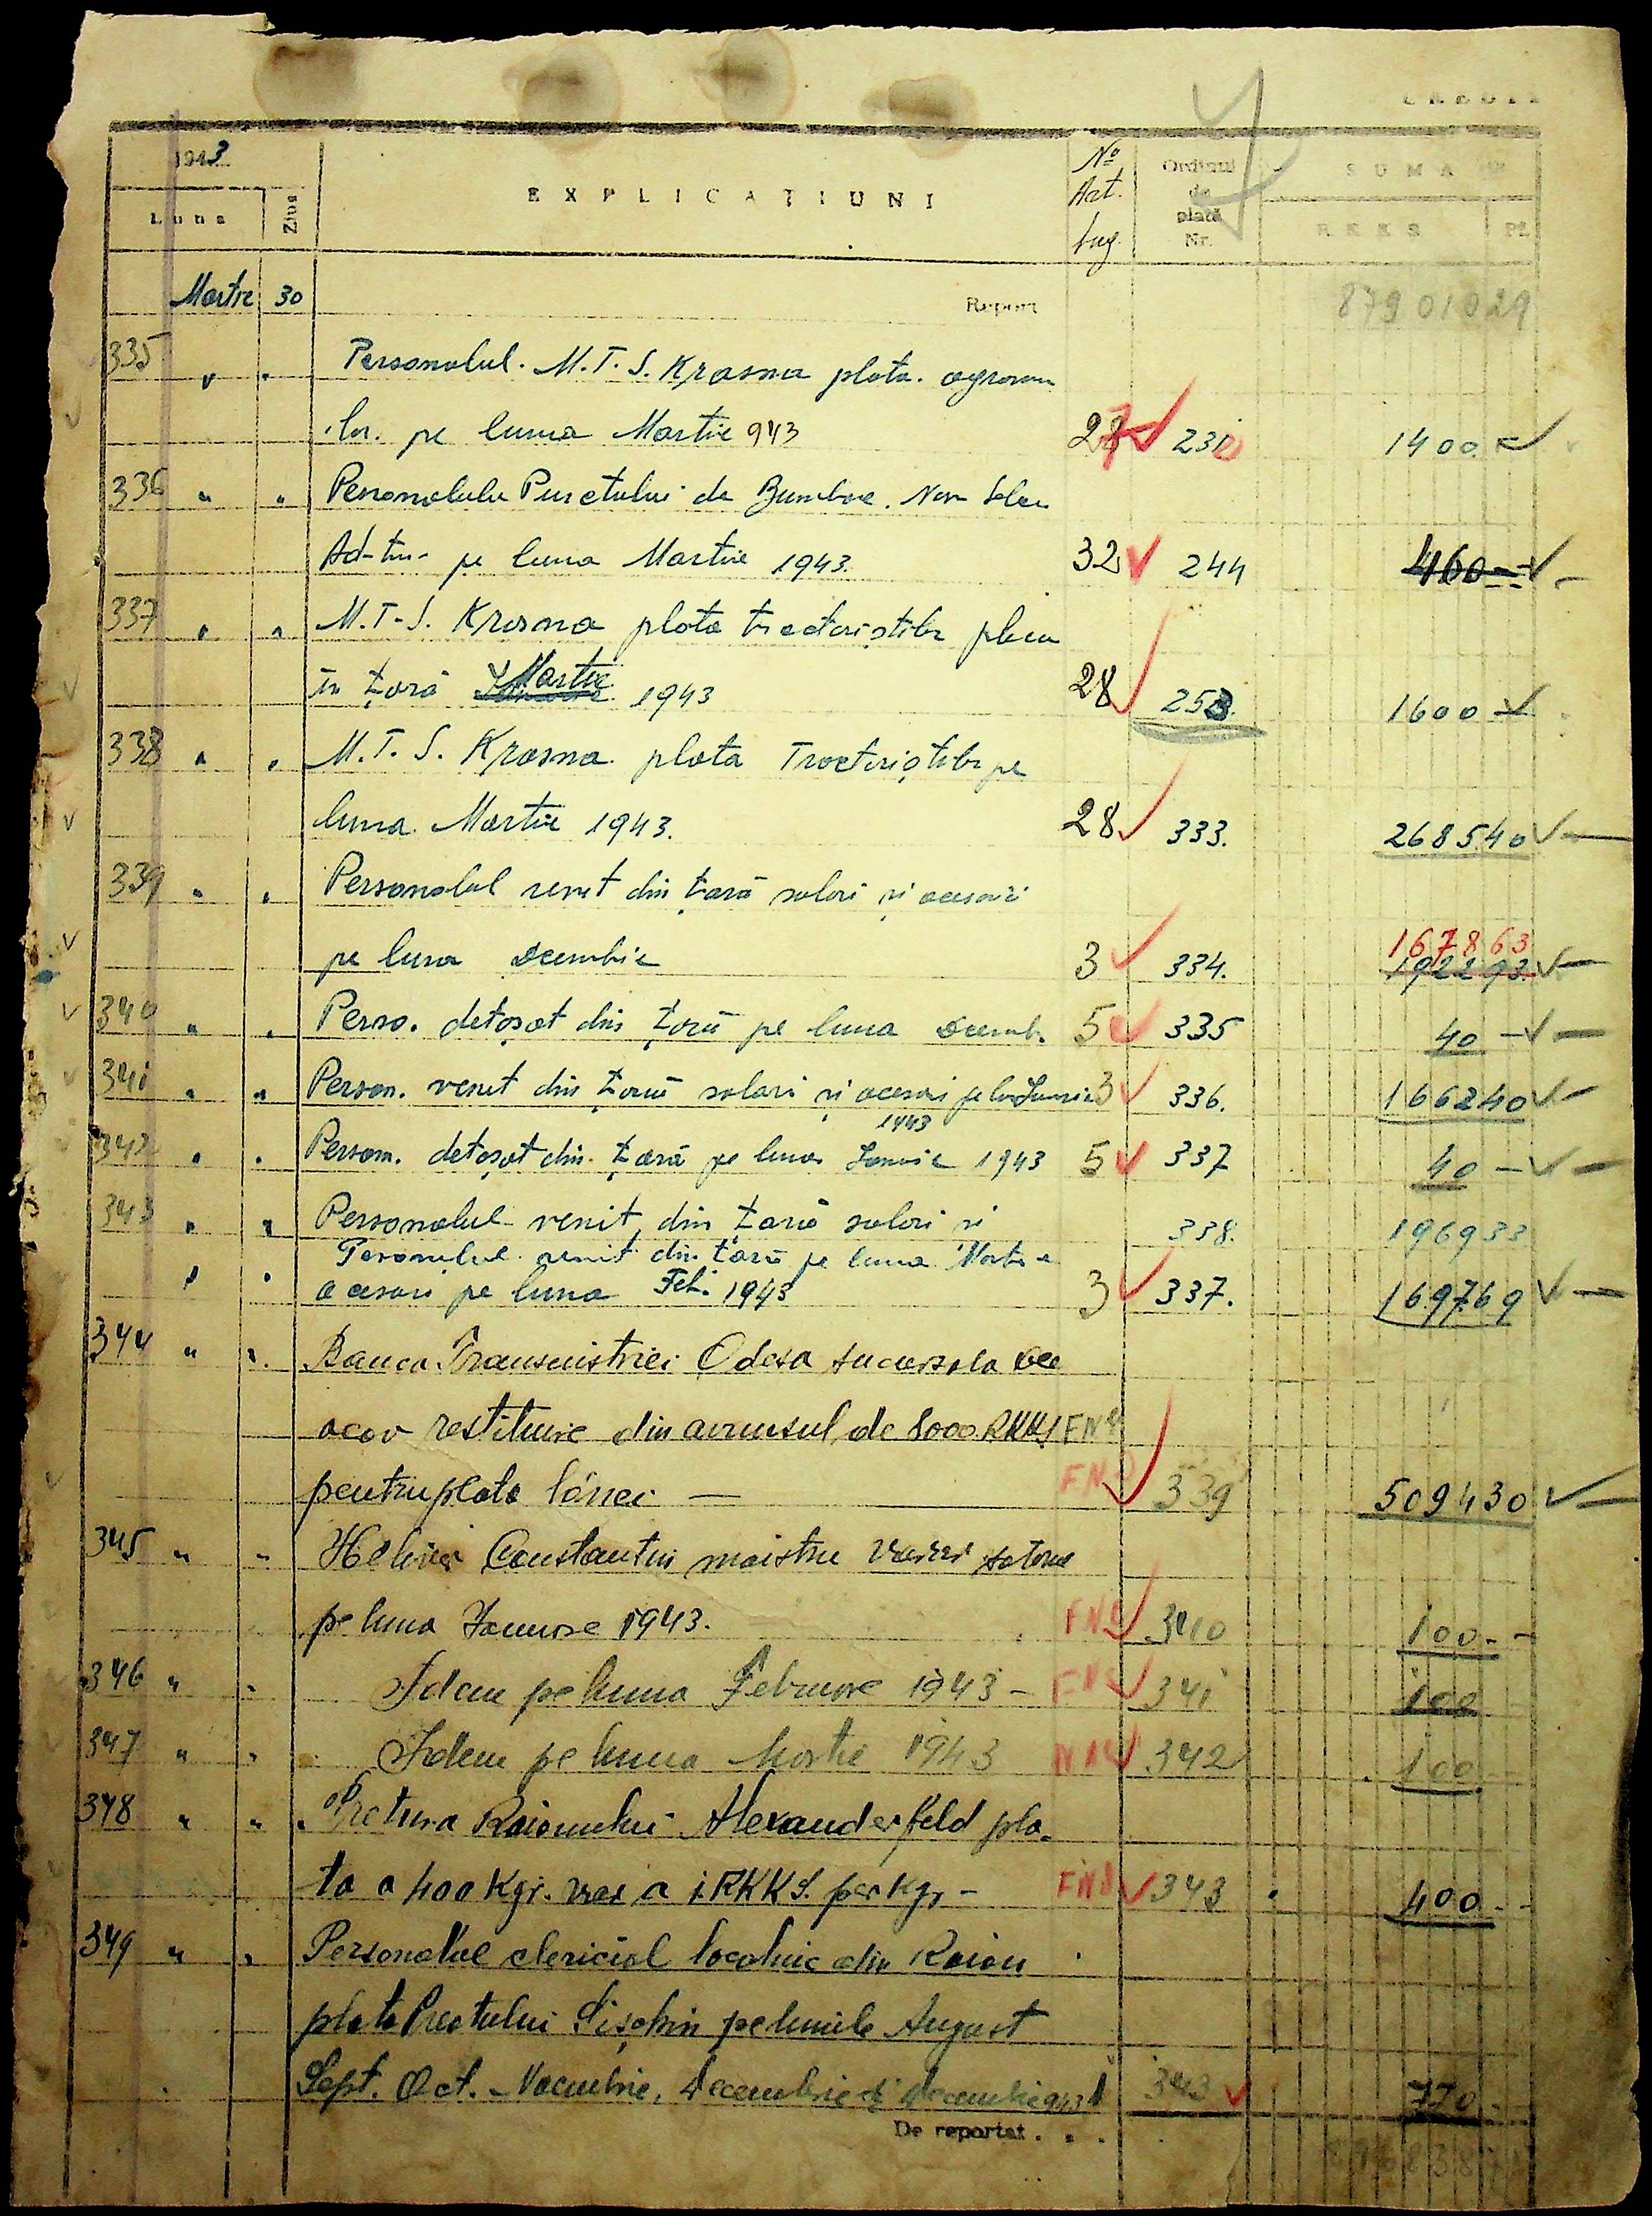 CREDIT
1943
Luna Ziua EXPLICAȚIUNI No Art. bug. Ordinul de plată Nr. SUMA RKKS Pf.
Martie 30 Report 87901029
335 " " Personalul. M.T.S. Krasna plata. agronom
lor. pe luna Martie 943 28 231 1400.-
336 " " Personalului Punctului de Bumbac.
pe luna Martie 1943. 32 244 460--
337 " " M.T.S. Krasna plata tractoriștilor
în țară Martie 1943 28 253. 1600 -
338 " " M.T.S. Krasna. plata Tractoriștilor pe
luna Martie 1943. 28 333. 268540
339 " " Personalul venit din țară salari și acesorii
167863
pe luna Decembrie 3 334. 192293.
340 " " Perso. detașat din țară pe luna Decemb. 5 335 40 -
341 " " Person. venit din țară salari și acesorii pe luna Ianuarie 3 336. 166240
1943
342 " " Person. detașat din țară pe luna Ianuarie 1943 5 337 40 -
343 " " Personalul venit din țară salari și 338. 196933
Personalul venit din țară pe luna Martie
" " acesorii pe luna Feb. 1943 3 337. 169769
344 " " Banca Transnistriei Odesa sucursala
restituire din avansul de 8000 RKKS FN
pentru plata lânei — FN 339 509430
345 " " Constantin maistru
pe luna Ianuarie 1943. FN 340 100--
346 " " Idem pe luna Februarie 1943 - FN 341 100
347 " " Idem pe luna Martie 1943 342 100
348 " " Pretura Raionului Alexanderfeld pla-
ta a 400 Kgr. var a 1 RKKS. per Kgr - FN 343 400--
349 " " Personalul clerical localnic din Raion
plata Preotului pe lunile August
Sept. Oct. Noembrie, Decembrie 343 770
De reportat . . .